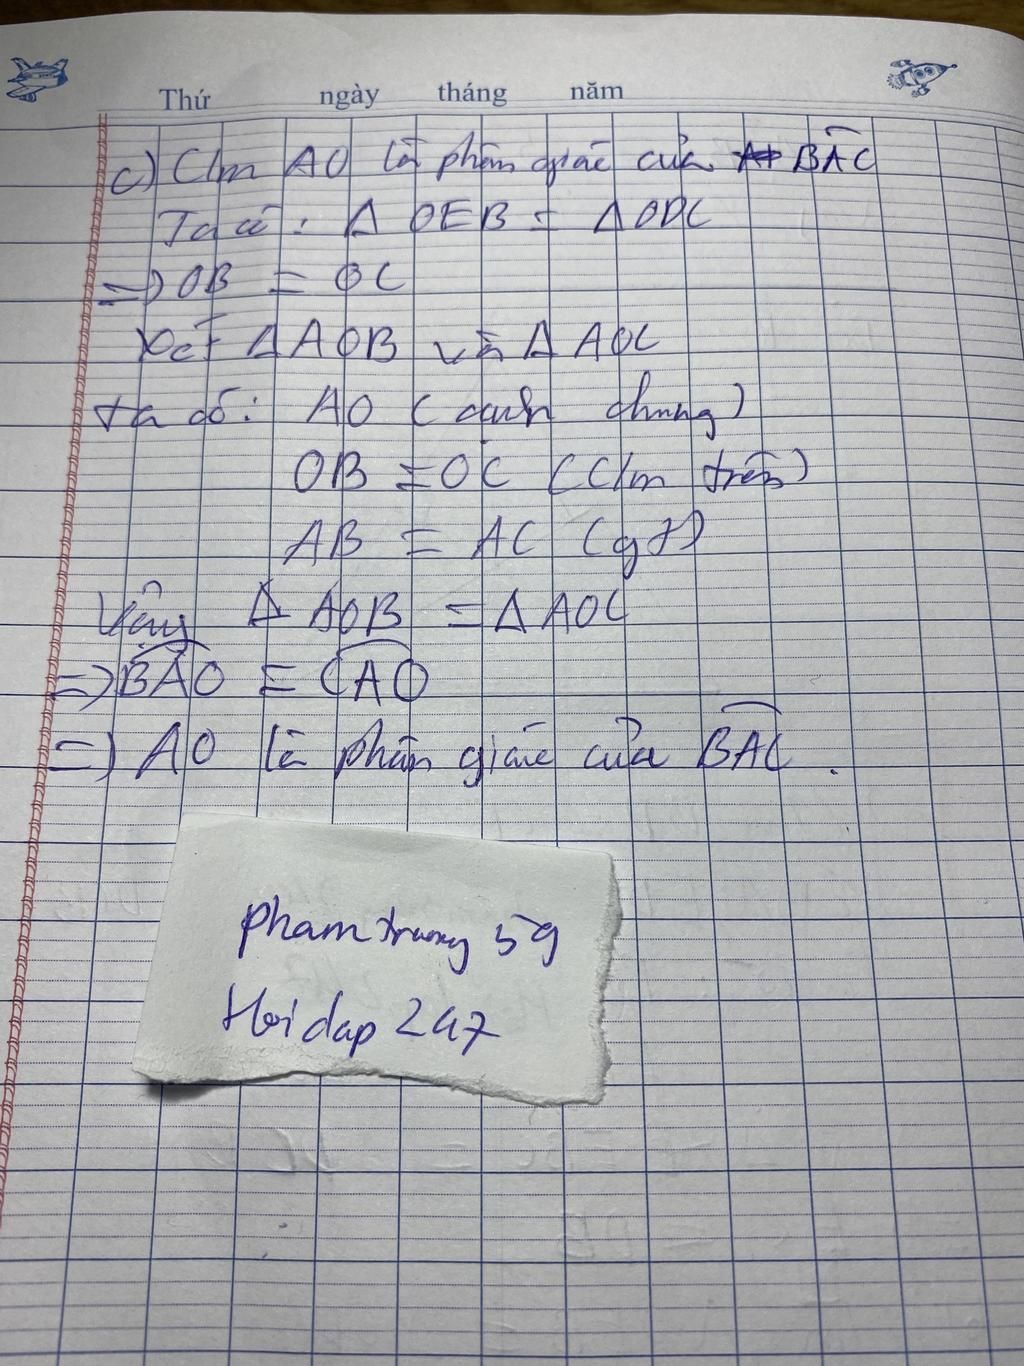 Thứ ngày tháng năm
c) C/m AO là phân giác của BAC
Ta có: Δ OEB = Δ ODC
=> OB = OC
Xét Δ AOB và Δ AOC
ta có: AO (cạnh chung)
OB = OC (C/m trên)
AB = AC (gt)
Vậy Δ AOB = Δ AOC
=> BAO = CAO
=> AO là phân giác của BAC.
phamtruong 59
Hoidap 247